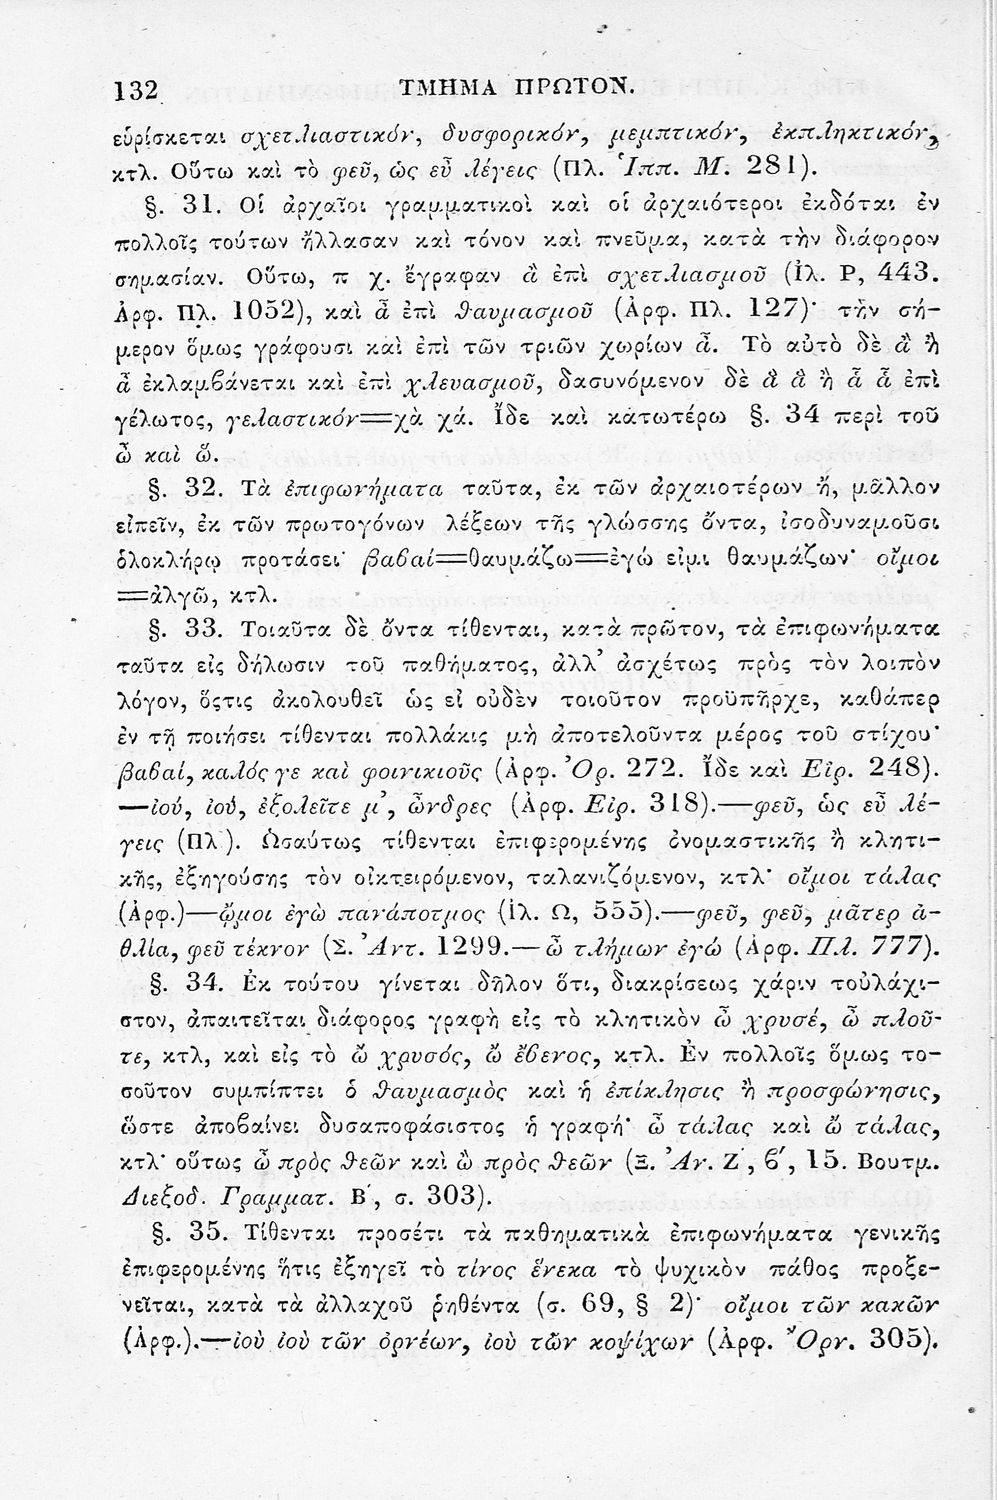 132 ΤΜΗΜΑ ΠΡΩΤΟΝ.
εὑρίσκεται σχετλιαστικόν, δυσφορικόν, μεμπτικόν, ἐκπληκτικόν,
κτλ. Οὕτω καὶ τὸ φεῦ, ὡς εὖ λέγεις (Πλ. Ἱππ. Μ. 281).
§. 31. Οἱ ἀρχαῖοι γραμματικοὶ καὶ οἱ ἀρχαιότεροι ἐκδόται ἐν
πολλοῖς τούτων ἤλλασαν καὶ τόνον καὶ πνεῦμα, κατὰ τὴν διάφορον
σημασίαν. Οὕτω, π χ. ἔγραφαν ἂ ἐπὶ σχετλιασμοῦ (Ἰλ. Ρ, 443.
Ἀρφ. Πλ. 1052), καὶ ἆ ἐπὶ θαυμασμοῦ (Ἀρφ. Πλ. 127)· τὴν σή-
μερον ὅμως γράφουσι καὶ ἐπὶ τῶν τριῶν χωρίων ἆ. Τὸ αὐτὸ δὲ ἂ ἢ
ἆ ἐκλαμβάνεται καὶ ἐπὶ χλευασμοῦ, δασυνόμενον δὲ ἃ ἃ ἢ ἇ ἇ ἐπὶ
γέλωτος, γελαστικόν=χὰ χά. Ἴδε καὶ κάτωτέρω §. 34 περὶ τοῦ
ὦ καὶ ὤ.
§. 32. Τὰ ἐπιφωνήματα ταῦτα, ἐκ τῶν ἀρχαιοτέρων ἤ, μᾶλλον
εἰπεῖν, ἐκ τῶν πρωτογόνων λέξεων τῆς γλώσσης ὄντα, ἰσοδυναμοῦσι
ὁλοκλήρῳ προτάσει· βαβαί=θαυμάζω=ἐγώ εἰμι θαυμάζων· οἴμοι
=ἀλγῶ, κτλ.
§. 33. Τοιαῦτα δὲ ὄντα τίθενται, κατὰ πρῶτον, τὰ ἐπιφωνήματα
ταῦτα εἰς δήλωσιν τοῦ παθήματος, ἀλλ' ἀσχέτως πρὸς τὸν λοιπὸν
λόγον, ὅςτις ἀκολουθεῖ ὡς εἰ οὐδὲν τοιοῦτον προϋπῆρχε, καθάπερ
ἐν τῇ ποιήσει τίθενται πολλάκις μὴ ἀποτελοῦντα μέρος τοῦ στίχου·
βαβαί, καλός γε καὶ φοινικιοῦς (Ἀρφ. Ὀρ. 272. Ἴδε καὶ Εἰρ. 248).
—ἰού, ἰού, ἐξολεῖτε μ', ὦνδρες (Ἀρφ. Εἰρ. 318).—φεῦ, ὡς εὖ λέ-
γεις (Πλ). Ὡσαύτως τίθενται ἐπιφερομένης ὀνομαστικῆς ἢ κλητι-
κῆς, ἐξηγούσης τὸν οἰκτειρόμενον, ταλανιζόμενον, κτλ· οἴμοι τάλας
(Ἀρφ.)—ᾤμοι ἐγὼ πανάποτμος (Ἰλ. Ω, 555).—φεῦ, φεῦ, μᾶτερ ἀ-
θλία, φεῦ τέκνον (Σ. Ἀντ. 1299.—ὦ τλήμων ἐγώ (Ἀρφ. Πλ. 777).
§. 34. Ἐκ τούτου γίνεται δῆλον ὅτι, διακρίσεως χάριν τοὐλάχι-
στον, ἀπαιτεῖται διάφορος γραφὴ εἰς τὸ κλητικὸν ὦ χρυσέ, ὦ πλοῦ-
τε, κτλ, καὶ εἰς τὸ ὢ χρυσός, ὢ ἔβενος, κτλ. Ἐν πολλοῖς ὅμως το-
σοῦτον συμπίπτει ὁ θαυμασμὸς καὶ ἡ ἐπίκλησις ἢ προσφώνησις,
ὥστε ἀποβαίνει δυσαποφάσιστος ἡ γραφή· ὦ τάλας καὶ ὢ τάλας,
κτλ· οὕτως ὦ πρὸς θεῶν καὶ ὢ πρὸς θεῶν (Ξ. Ἀν. Ζ', β', 15. Βουτμ.
Διεξοδ. Γραμματ. Β', σ. 303).
§. 35. Τίθενται προσέτι τὰ παθηματικὰ ἐπιφωνήματα γενικῆς
ἐπιφερομένης ἥτις ἐξηγεῖ τὸ τίνος ἕνεκα τὸ ψυχικὸν πάθος προξε-
νεῖται, κατὰ τὰ ἀλλαχοῦ ῥηθέντα (σ. 69, § 2)· οἴμοι τῶν κακῶν
(Ἀρφ.).—ἰοὺ ἰοὺ τῶν ὀρνέων, ἰοὺ τῶν κοψίχων (Ἀρφ. Ὄρν. 305).